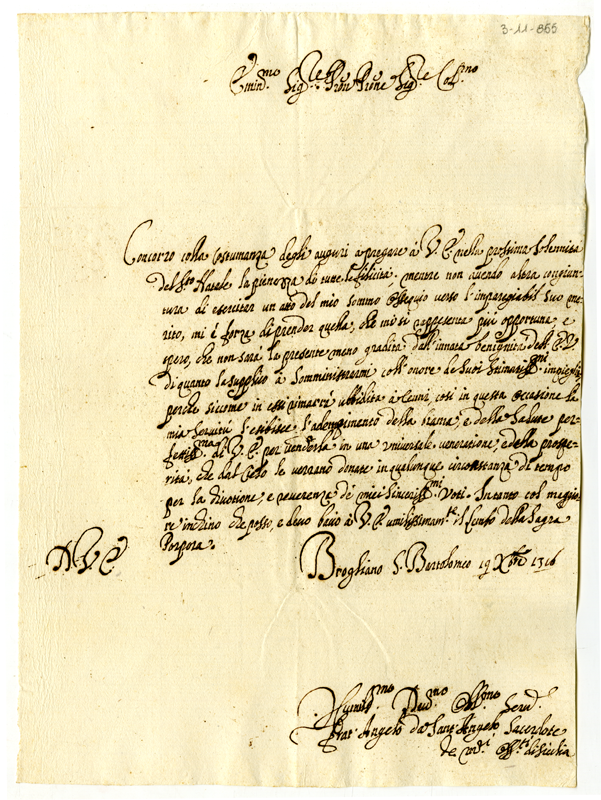 3-11-865
Emin.mo Sig.re Pron Prone Sig.re Col.mo
Concorro colla costumanza degli auguri a pregare à V. E. nella prossima Solennità
del S.to Natale la pienezza di tutte le felicità, mentre non avendo altra congiun-
tura di esercitar un atto del mio sommo ossequio verso l'impareggiabil suo me-
rito, mi è forza di prender quella, che mi si rappresenta più opportuna, e
spero, che non sarà la presente meno gradita dall'innata benignità dell' E. V.
di quanto la supplico à somministrarmi coll'onore de suoi stimatiss.mi impieghi
perche siccome in essi rimarrà ubbidita à cenni, così in questa occasione la
mia servitù l'esibisce l'adempimento della brama, e della salute per-
fettiss.ma di V. E. per renderla in una universale venerazione, e della prospe-
rità, che dal Cielo le verranno donate in qualunque circostanza di tempo
per la divotione, e reverenza de miei sinceriss.mi voti. Intanto col maggio-
re inchino che posso, e devo bacio à V. E. umilissimam.te il lembo della Sagra
Porpora.
D. V. E.
Brogliano S. Bartolomeo 19 Xbre 1716
Humiliss.mo Devd.mo Obl.mo Serv.e
Frat' Angelo da Sant' Angelo Sacerdote
de Sicilia